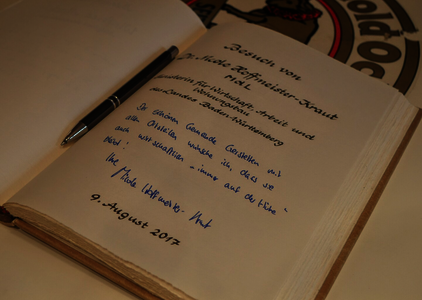 Besuch von
Dr. Nicole Hoffmeister-Kraut
MdL
Ministerin für Wirtschaft, Arbeit und
Wohnungsbau
des Landes Baden-Württemberg
Gemeinde Gerstetten mit
allen Ortsteilen wünsche ich, dass es
auch wirtschaftlich immer auf der Höhe
Ihre
Nicole Hoffmeister-Kraut
9. August 2017